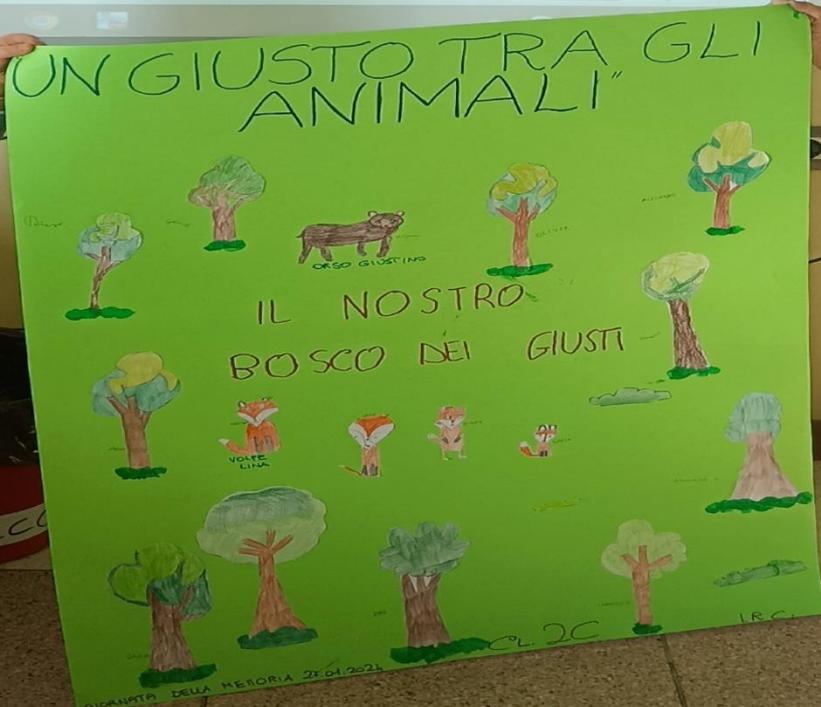 UN GIUSTO TRA GLI
ANIMALI"
ORSO GIUSTINO
OLIVER
IL NOSTRO
BOSCO DEI GIUSTI
VOLPE
LINA
CL. 2C
I.R.C.
GIORNATA DELLA MEMORIA 27.01.2024